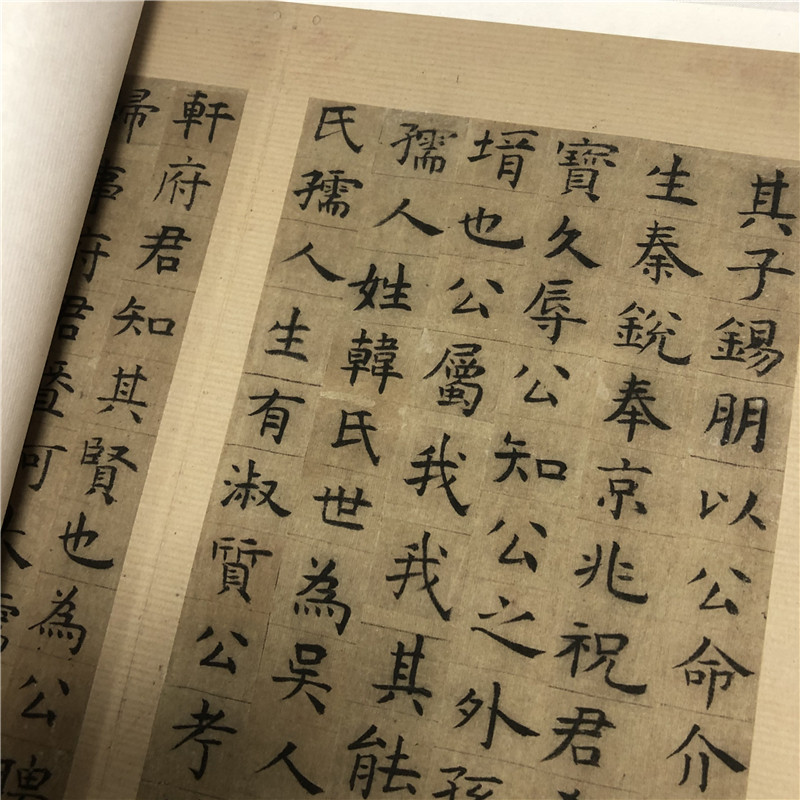 其子錫朋以公命介
生秦銳奉京兆祝君
寶久辱公知公之外孫
壻也公屬我我其能
孺人姓韓氏世為吳人
氏孺人生有淑質公考
軒府君知其賢也為公聘
歸事府君暨可大